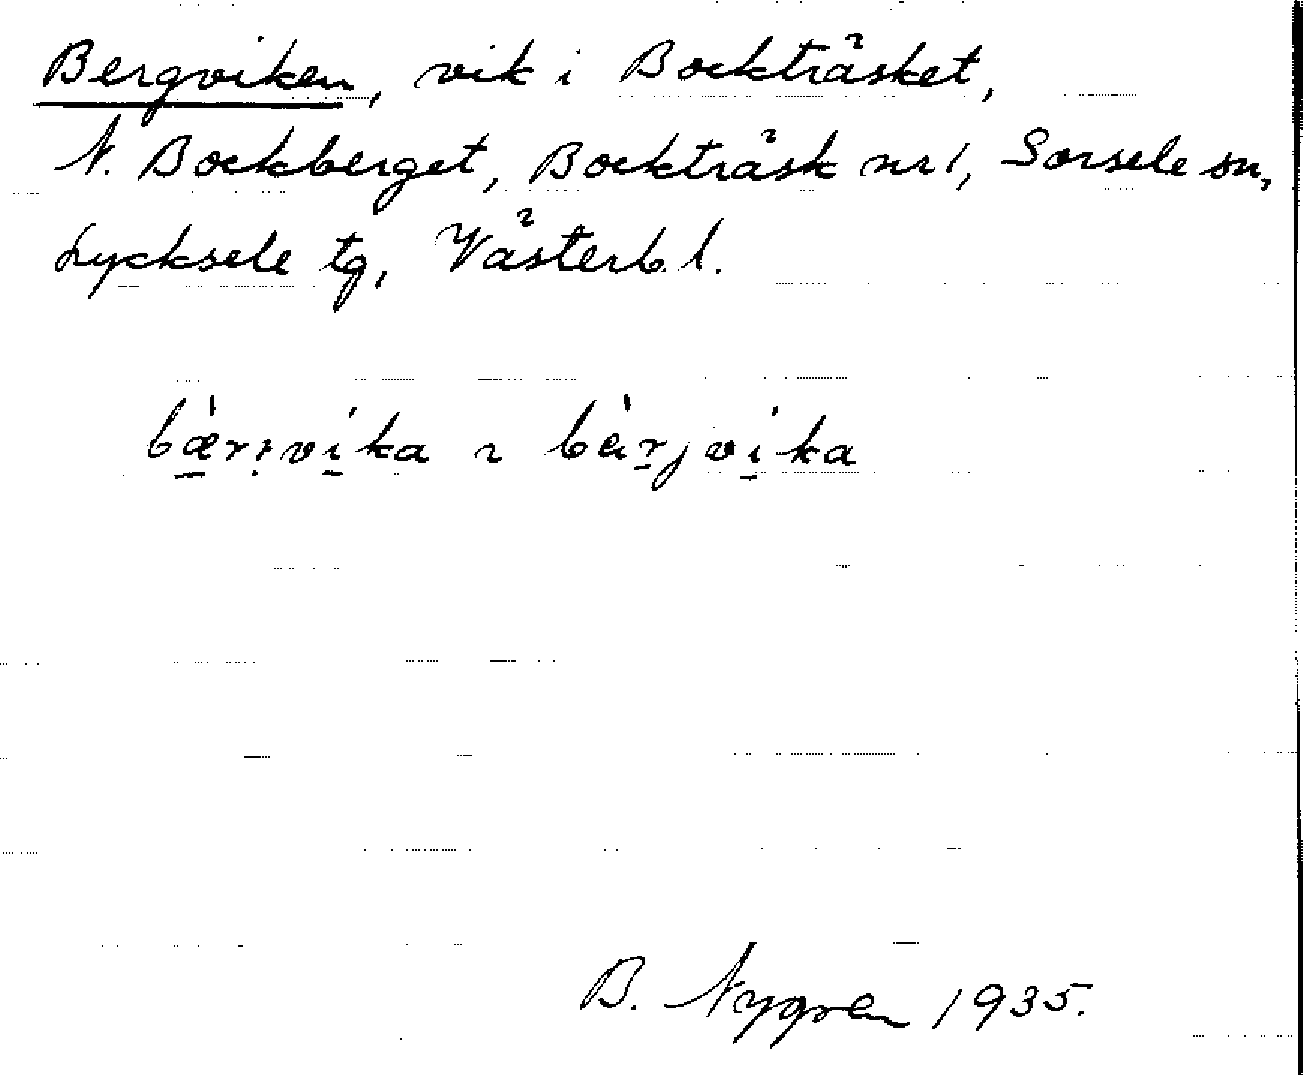 Bergviken, vik i Bockträsket,
N. Bockberget, Bockträsk nr 1, Sorsele sn,
Lycksele tg, Västerb. l.
B. Nygren 1935.